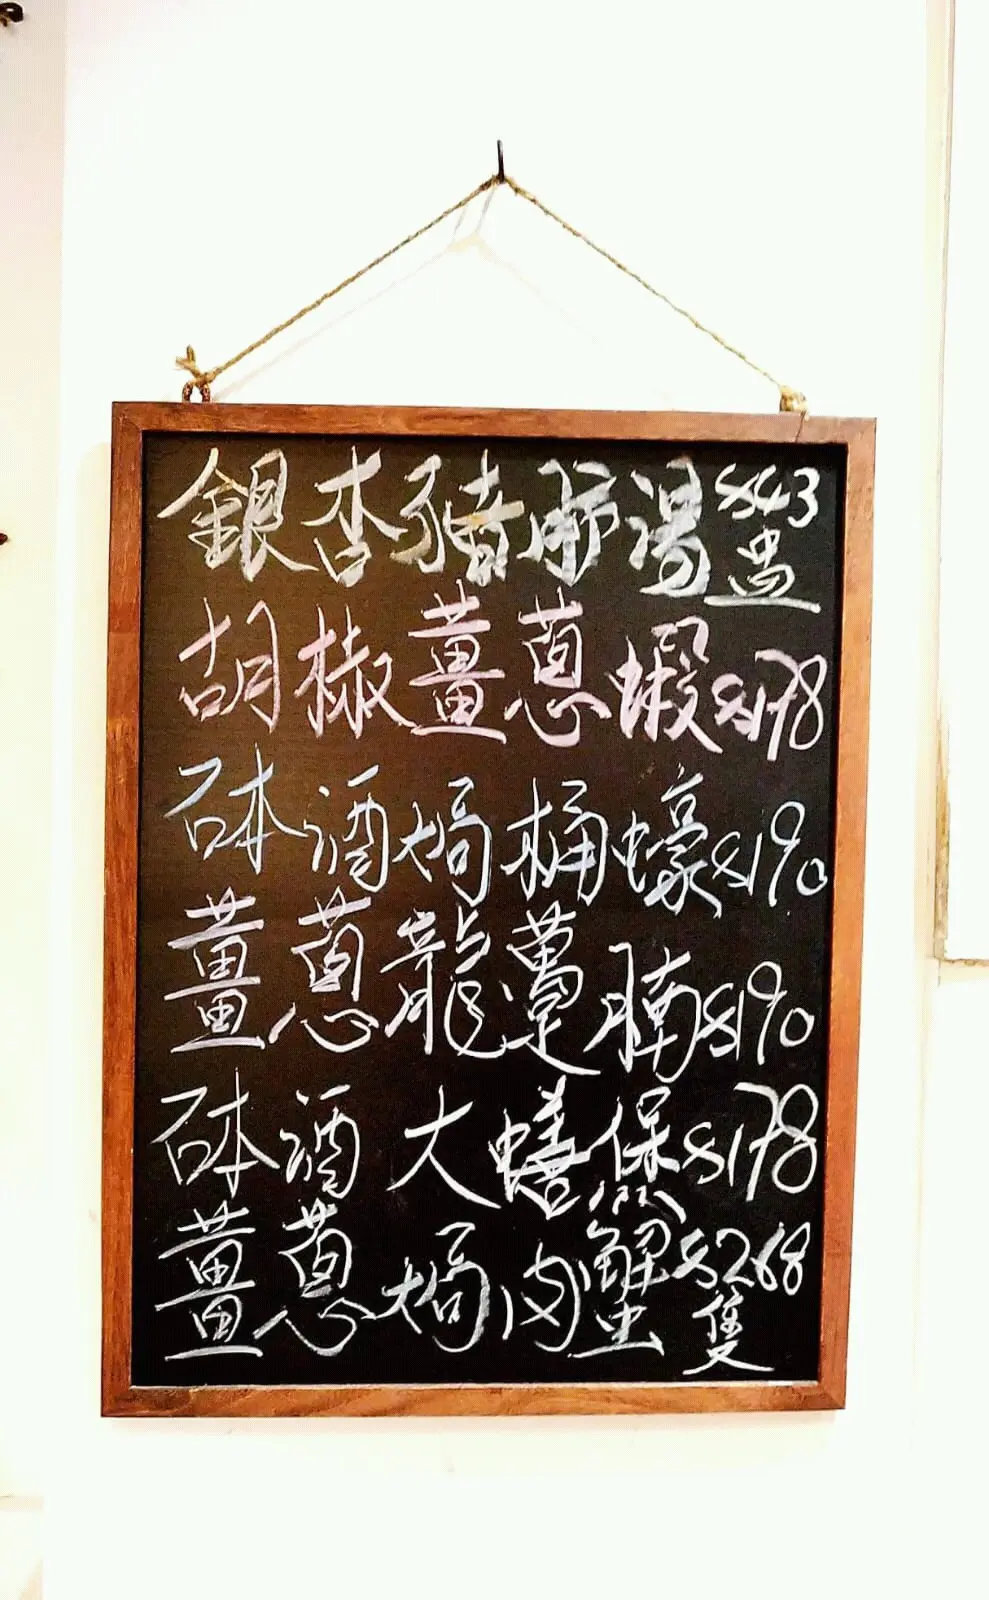 銀杏豬肺湯 $43
盅
胡椒薑蔥蝦 $178
砵酒焗桶蠔 $190
薑蔥龍躉腩 $190
砵酒大蟮煲 $178
薑蔥焗肉蟹 $268
隻